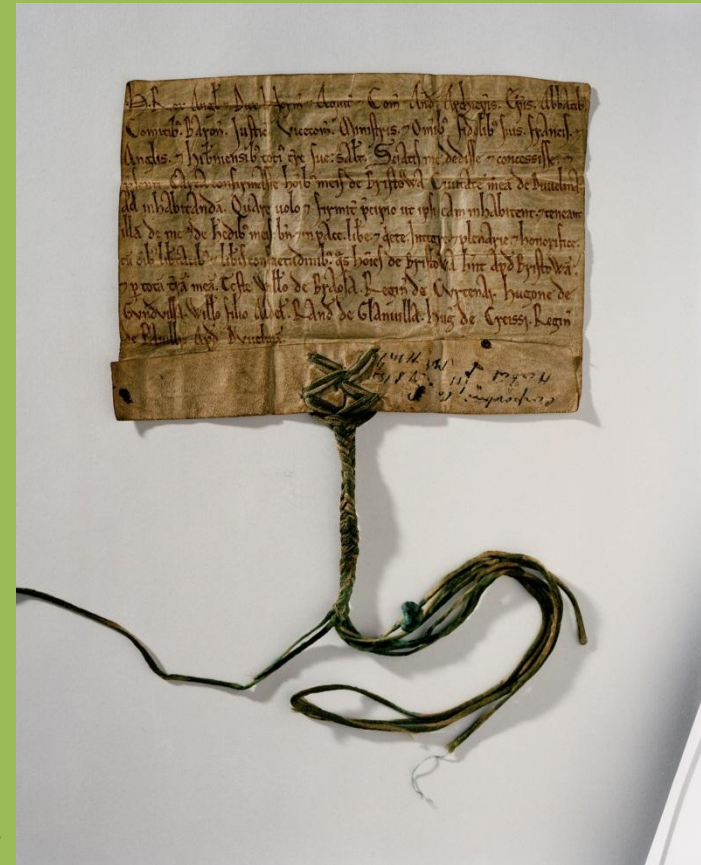 H. Rex Angl. ⁊ Dux Norm. ⁊ Aquit. ⁊ Com. And. Archiepis. Epis. Abbatib.
Comitib. Baron. Justic. Vicecom. Ministris. ⁊ Omib. fidelib. suis. francis. ⁊
Anglis. ⁊ Hibniensib. toti tre sue: salt. Sciatis me dedisse ⁊ concessisse. ⁊
psenti Carta confirmasse hoib meis de Bristowa Civitate meā de Duvelina
ad inhabitandā. Quare uolo ⁊ firmit pcipio ut ipsi eam inhabitent. ⁊ teneant
illā de me ⁊ de hedib meis bn ⁊ in pace. libe ⁊ qete. Integre ⁊ plenarie ⁊ honorifice.
cū oib libtatib ⁊ libis consuetudinib. qs hoies de Bristowa hnt apd Bristowā.
⁊ p totā trā meā. Teste Willo de Braosa. Regin de Curtenai. Hugone de
Gundvilla. Willo filio Aldel. Rand de Glanvilla. Hug de Creissi. Regin
de Apd Duvelinā.